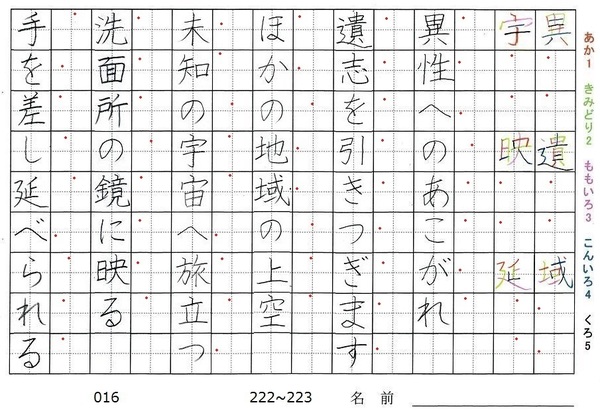 あか1 きみどり2 ももいろ3 こんいろ4 くろ5
異 遺 域
宇 映 延
異性へのあこがれ
遺志を引きつぎます
ほかの地域の上空
未知の宇宙へ旅立つ
洗面所の鏡に映る
手を差し延べられる
016 222~223 名 前